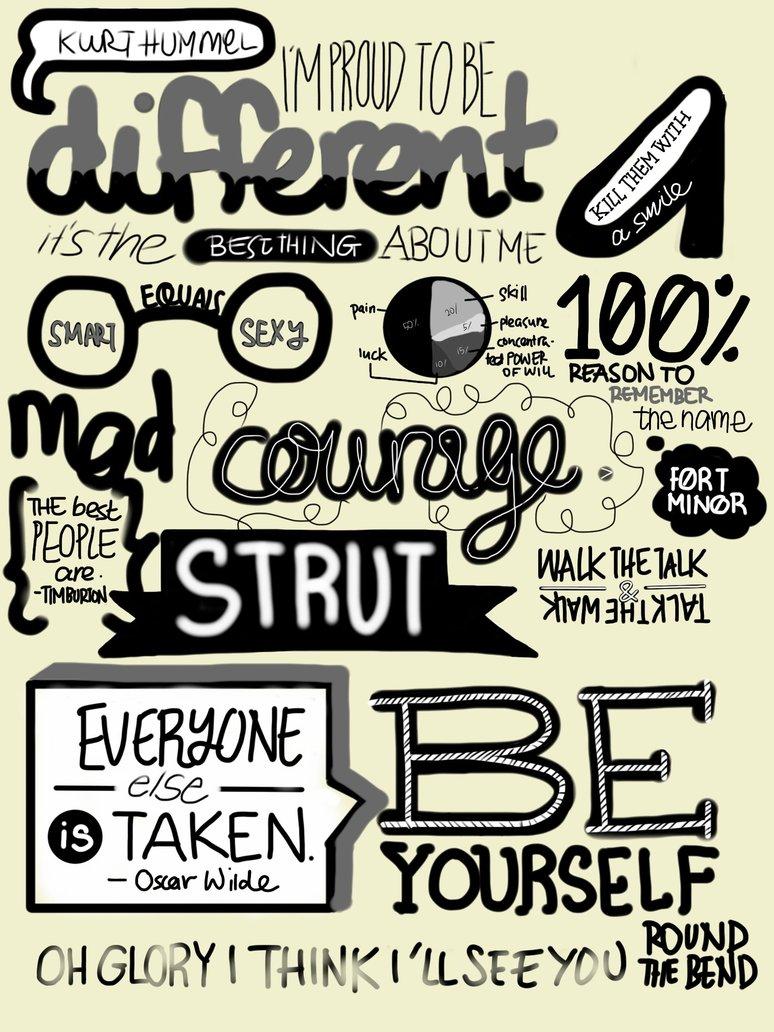 KURT HUMMEL
I'M PROUD TO BE
different
it's the BEST THING ABOUT ME
KILL THEM WITH
a smile
SMART EQUALS SEXY
pain
luck
50%
20%
5%
15%
10%
skill
pleasure
concentra-
ted POWER
OF WILL
100%
REASON TO
REMEMBER
the name
FORT
MINOR
mad
courage
THE best
PEOPLE
are.
-TIM BURTON
STRUT
WALK THE TALK
&
TALK THE WALK
EVERYONE
else
is TAKEN.
- Oscar Wilde
BE
YOURSELF
OH GLORY I THINK I'LL SEE YOU
ROUND
THE BEND